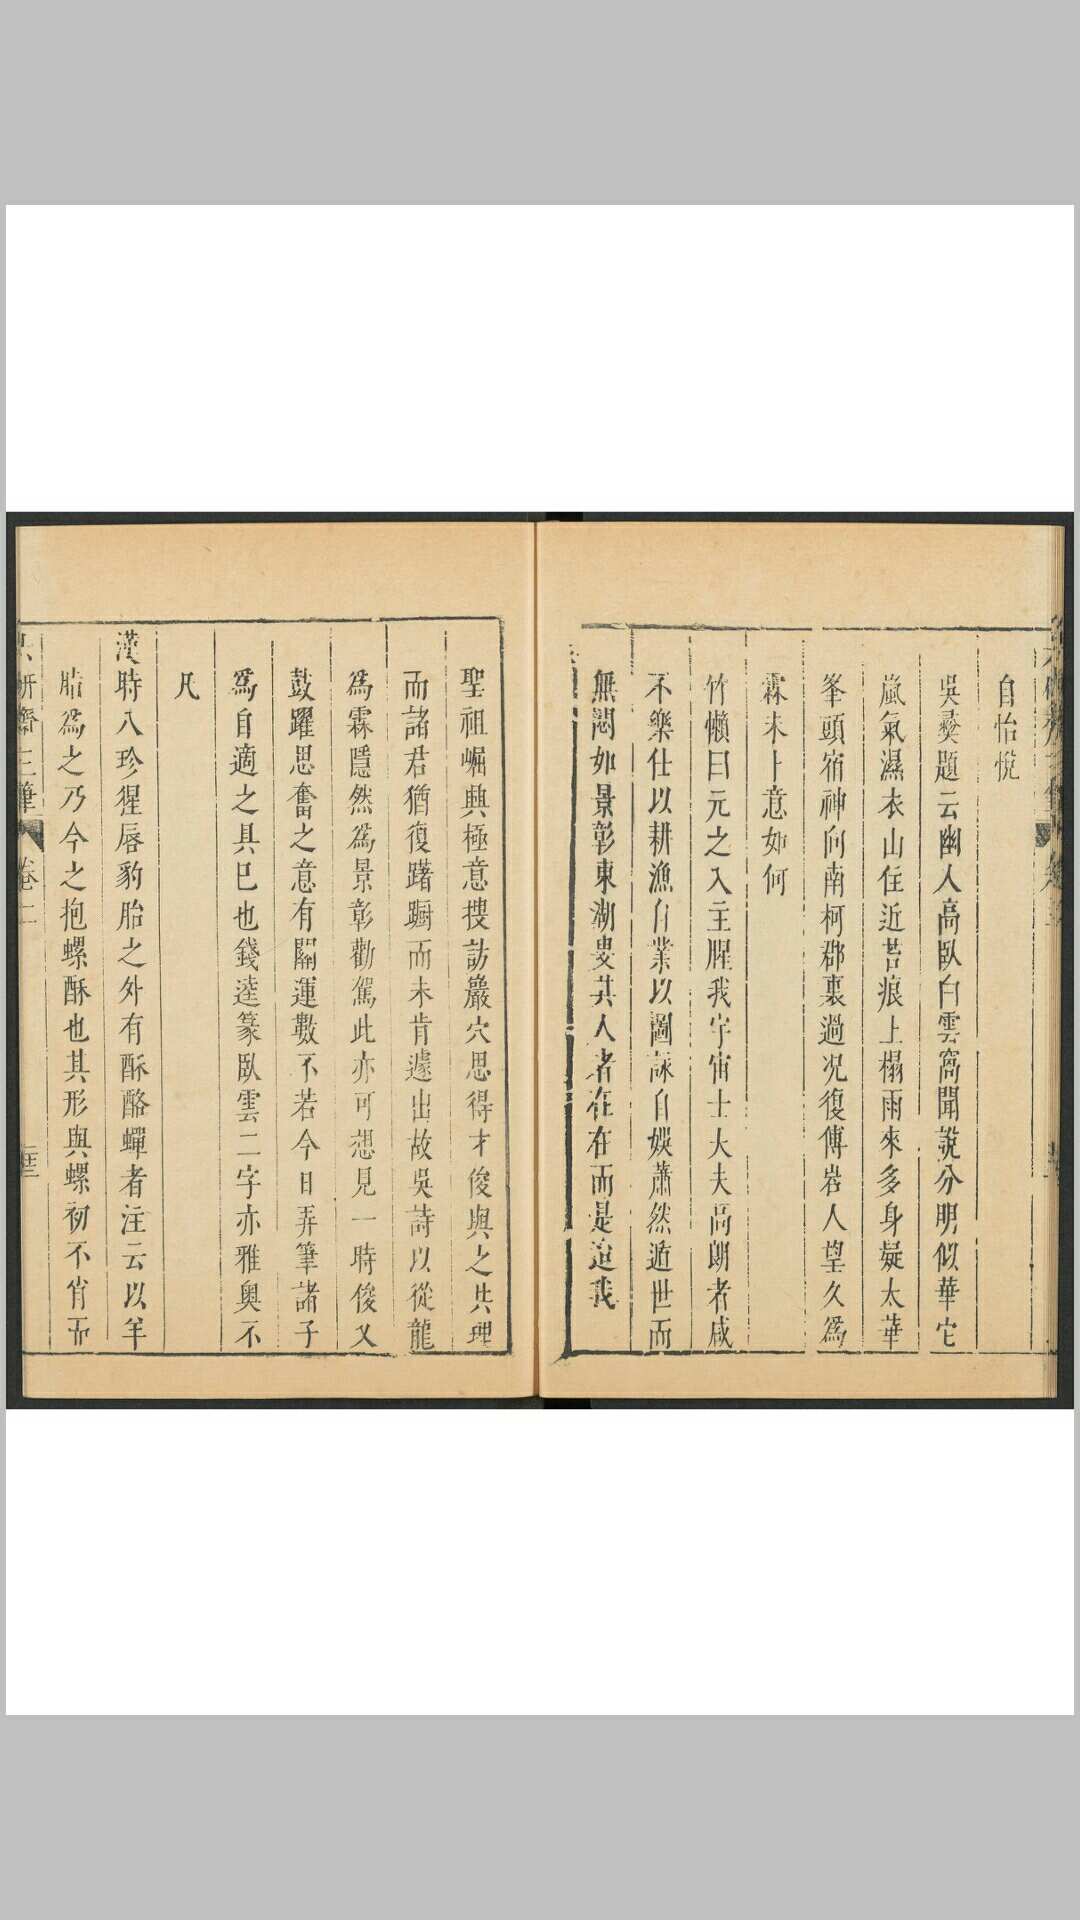 自怡悅
吳彛題云幽人高臥白雲窩聞說分明似華它
嵐氣濕衣山住近苔痕上榻雨來多身疑太華
峯頭宿神向南柯郡裏過况復傅岩人望久爲
霖未卜意如何
竹懶曰元之入主腥我宇宙士大夫高朗者咸
不樂仕以耕漁自業以圖詠自娛蕭然遁世而
無悶如景彰東湖叟其人者在在而是迨我
聖祖崛興極意搜訪巖穴思得才俊與之共理
而諸君猶復躇躕而未肯遽出故吳詩以從龍
爲霖隱然爲景彰勸駕此亦可想見一時俊乂
鼓躍思奮之意有關運數不若今日弄筆諸子
爲自適之具已也錢逵篆臥雲二字亦雅奥不
凡
漢時八珍猩唇豹胎之外有酥酪蟬者注云以羊
脂爲之乃今之抱螺酥也其形與螺初不肖而
研齋三筆 卷二